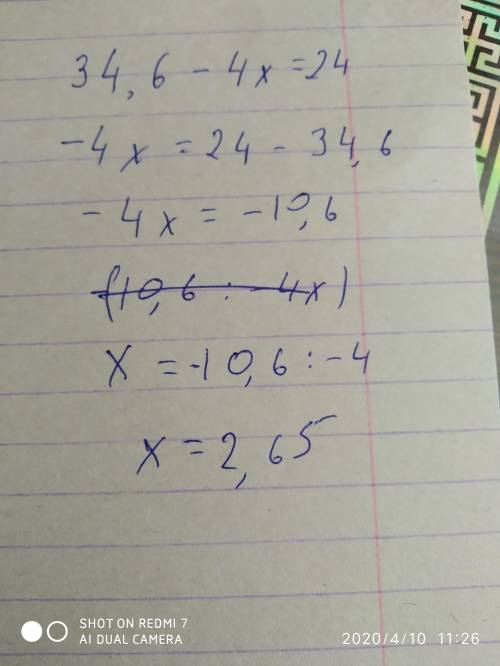 34,6 - 4x = 24
-4x = 24 - 34,6
-4x = -10,6
(10,6 : -4x)
x = -10,6 : -4
x = 2,65
SHOT ON REDMI 7
AI DUAL CAMERA
2020/4/10 11:26